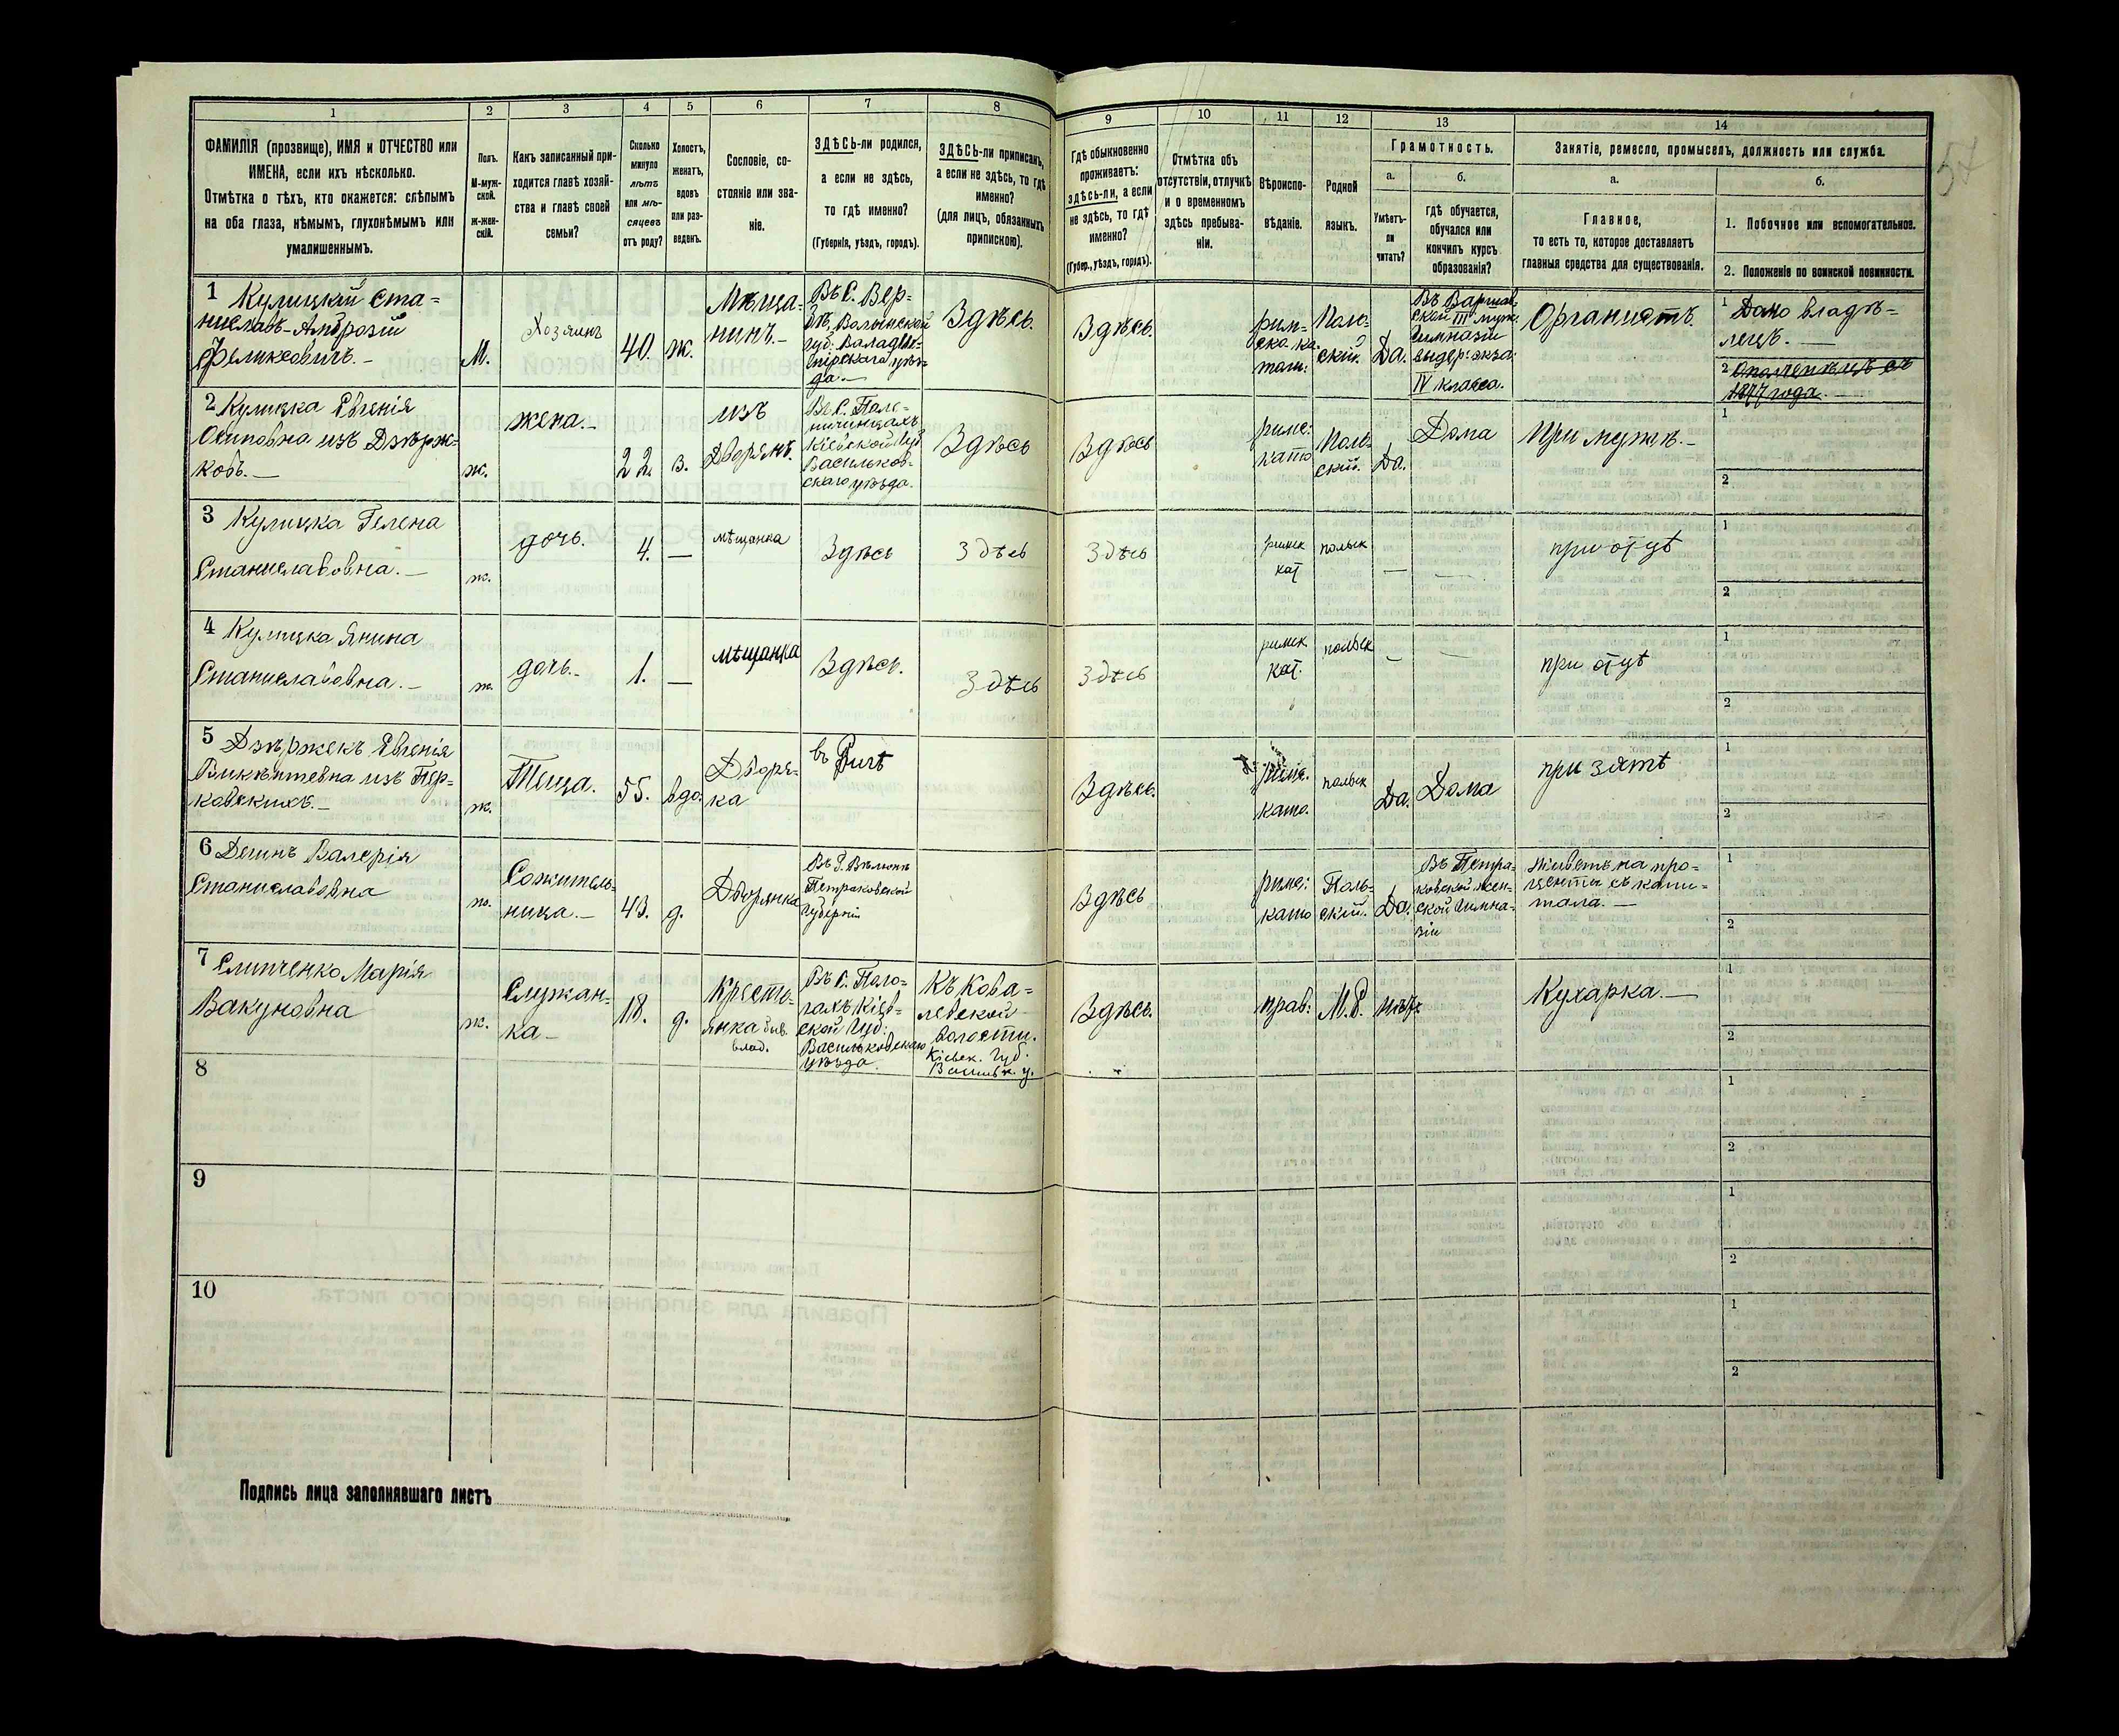 1
2
3
4
5
6
7
8
9
10
11
12
13
14
57
ФАМИЛІЯ (прозвище), ИМЯ и ОТЧЕСТВО или
ИМЕНА, если ихъ нѣсколько.
Отмѣтка о тѣхъ, кто окажется: слѣпымъ
на оба глаза, нѣмымъ, глухонѣмымъ или
умалишеннымъ.
Полъ.
М-муж-
ской.
ж-жен-
скій.
Какъ записанный при-
ходится главѣ хозяй-
ства и главѣ своей
семьи?
Сколько
минуло
лѣтъ
или мѣ-
сяцевъ
отъ роду?
Холостъ,
женатъ,
вдовъ
или раз-
веденъ.
Сословіе, со-
стояніе или зва-
ніе.
ЗДѢСЬ-ли родился,
а если не здѣсь,
то гдѣ именно?
(Губернія, уѣздъ, городъ).
ЗДѢСЬ-ли приписанъ,
а если не здѣсь, то гдѣ
именно?
(для лицъ, обязанныхъ
припискою).
Гдѣ обыкновенно
проживаетъ:
здѣсь-ли, а если
не здѣсь, то гдѣ
именно?
(Губер., уѣздъ, городъ).
Отмѣтка объ
отсутствіи, отлучкѣ
и о временномъ
здѣсь пребыва-
ніи.
Вѣроиспо-
вѣданіе.
Родной
языкъ.
Грамотность.
а.
Умѣетъ-
ли
читать?
б.
гдѣ обучается,
обучался или
кончилъ курсъ
образованія?
Занятіе, ремесло, промыселъ, должность или служба.
а.
Главное,
то есть то, которое доставляетъ
главныя средства для существованія.
б.
1. Побочное или вспомогательное.
2. Положеніе по воинской повинности.
1 Кулицкій Ста-
ниславъ-Амброзій
Феликсовичъ.-
М.
Хозяинъ
40.
ж.
Мѣща-
нинъ.-
Въ С. Вер-
Волынской
губ. Валадим-
ірскаго уѣз-
да.-
Здѣсь.
Здѣсь.
рим-
ско ка-
толи:
Поль-
скій.
Да.
Въ Варшав-
ской III муж.
Гимназіи
выдер: экза:
IV класса.
Органистъ.
1 Домо владѣ-
лецъ.-
2 Ополченецъ съ
1877 года.
2 Кулицка Евгенія
Осиповна изъ Дзѣрж-
ковъ.-
ж.
жена.-
22.
з.
изъ
Дворянъ.
Въ С. Поло-
Кіевской Губ
Васильков-
скаго уѣзда.
Здѣсь
Здѣсь
римс:
като
Поль-
скій.
Да.
Дома
При мужѣ.-
1
2
3 Кулицка Гелена
Станиславовна.-
ж.
дочь.
4.
—
мѣщанка
Здѣсь
Здѣсь
Здѣсь
римск
кат
польск
—
—
при отцѣ
1
2
4 Кулицка Янина
Станиславовна.-
ж.
дочь.-
1.
—
мѣщанка
Здѣсь.
Здѣсь
Здѣсь
римск
кат.
польск
—
—
при отцѣ
1
2
5 Дзѣржекъ Евгенія
Викентевна изъ Пер-
ковскихъ.-
ж.
Теща.
55.
вдо.
Дворя-
ка
въ Ригѣ
Здѣсь.
като.
польск
Да.
Дома
при зятѣ
1
2
6 Валерія
Станиславовна
ж.
Сожитель-
ница.-
43.
д.
Дворянка
Петраковской
Губерніи
Здѣсь
римс:
като
Поль-
скій.
Да.
Въ Петра-
ковской жен-
ской Гимна-
зіи
живетъ на про-
центы съ капи-
тала.-
1
2
7 Слипченко Марія
Вакуновна
ж.
Служан-
ка-
18.
д.
Кресть-
янка быв.
влад.
Въ С. Поло-
гахъ Кіев-
ской Губ:
Васильковскаго
уѣзда.
Къ Кова-
левской
волости.
Кіевск. Губ.
Васильк. у.
Здѣсь.
прав:
М.Р.
нѣтъ
Кухарка.-
1
2
8
1
2
9
1
2
10
1
2
Подпись лица заполнявшаго листъ